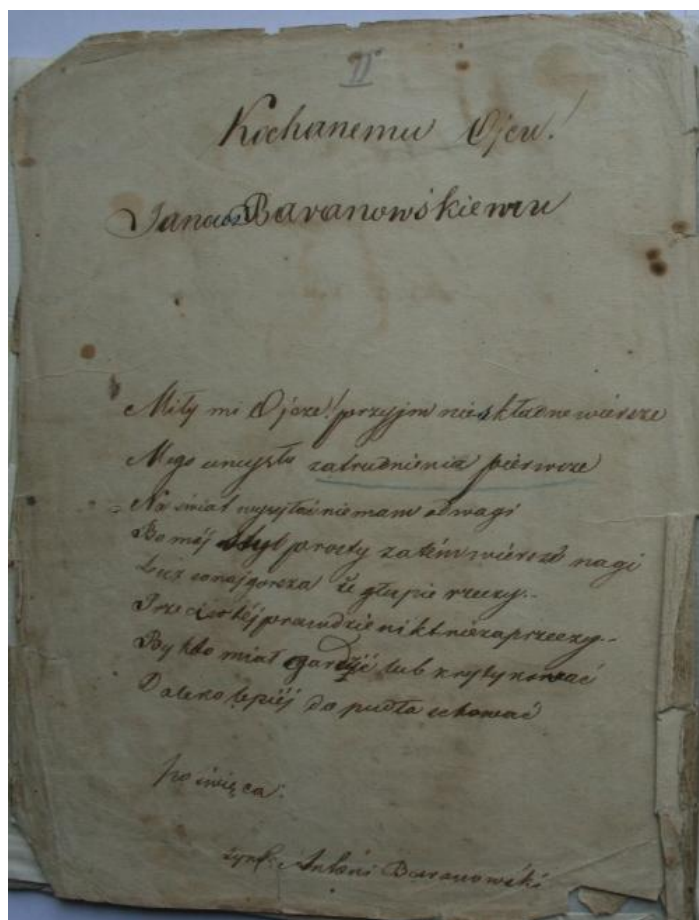 II
Kochanemu Ojcu!
Janowi Baranowskiemu
Miły mi Ojcze! przyjm nieskładne wiérsze
Mego umysłu zatrudnienia piérwsze
Na świat wysyłać niemam odwagi
Bo mój styl prosty zatém wiérsz nagi
Lecz conajgorsza że głupie rzeczy...
Przecież téj prawdzie nikt niezaprzeczy...
By kto miał gardzić lub krytykować
Daleko lepiéj do pudła schować
poświęca:
syn: Antoni Baranowski